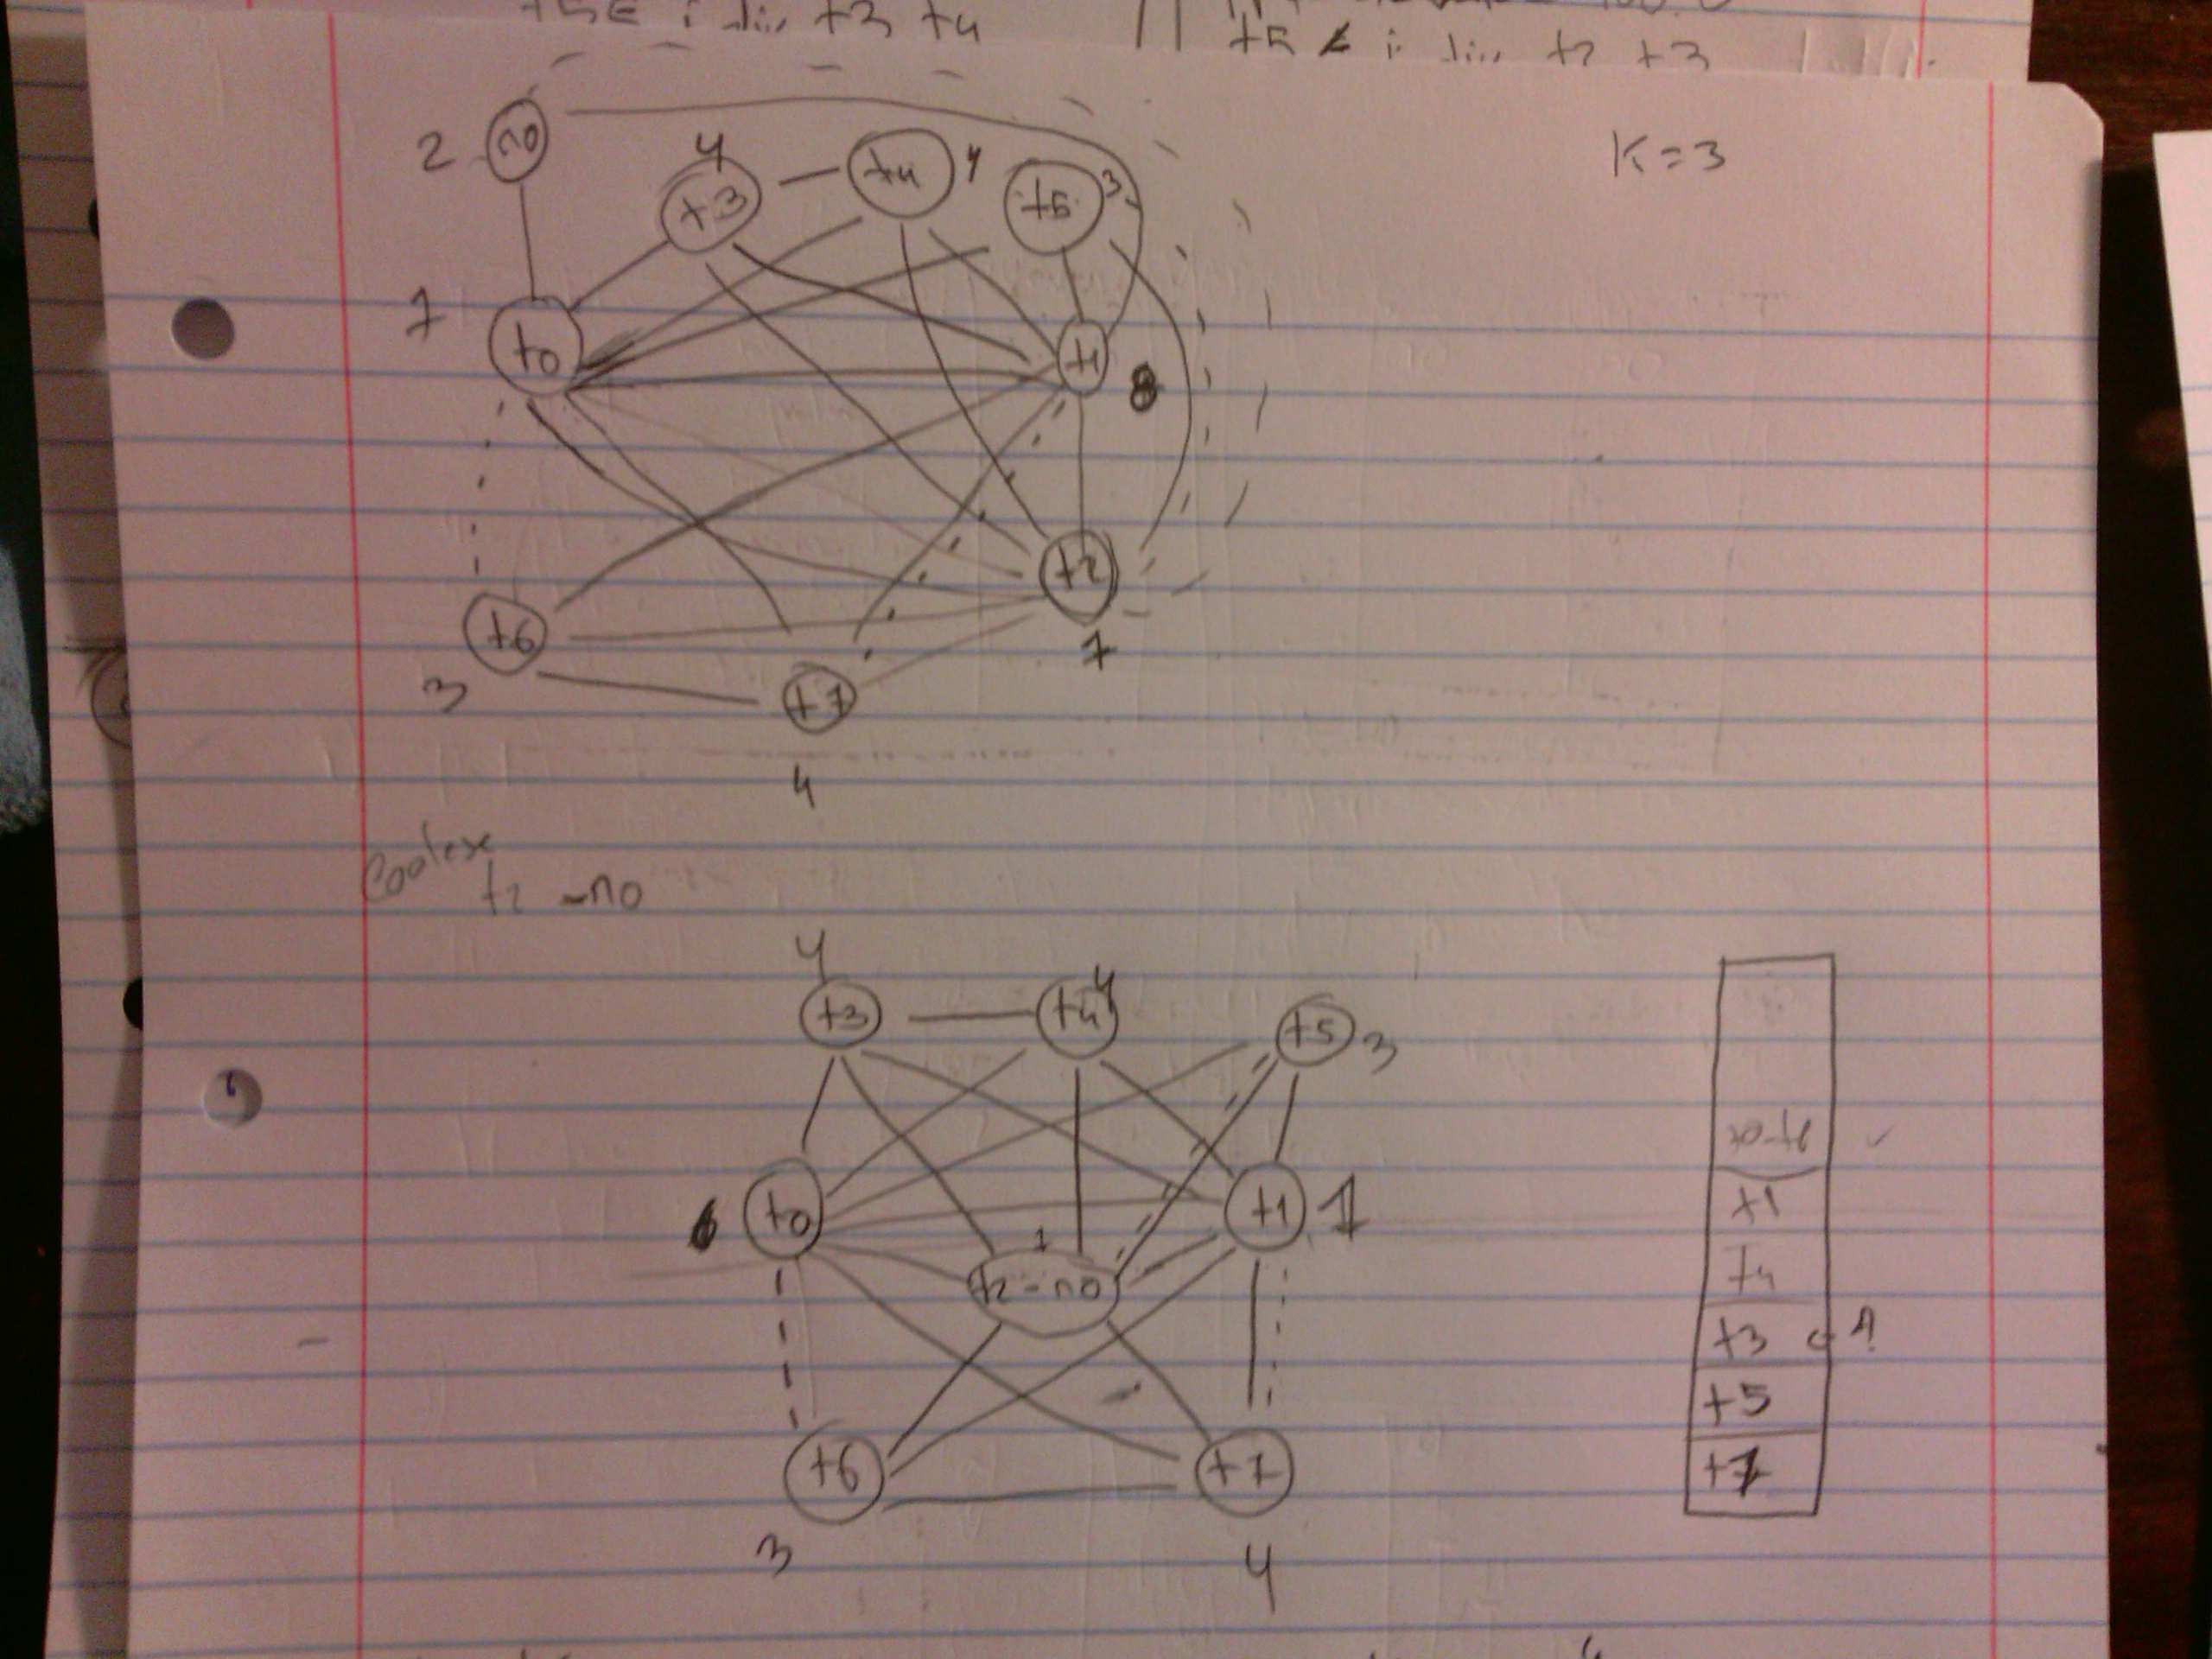 t5 ← i div t3 t4
t5 ← i div t2 t3
K=3
2 n0
4
t3
t4 4
t5 3
7
t0
t1
8
t2
7
t6
3
t7
4
Coalesce
t2 - n0
4
t3
t4 4
t5 3
6 t0
t1 7
7
t2-n0
t6
3
t7
4
t1
t4
t3
t5
t7